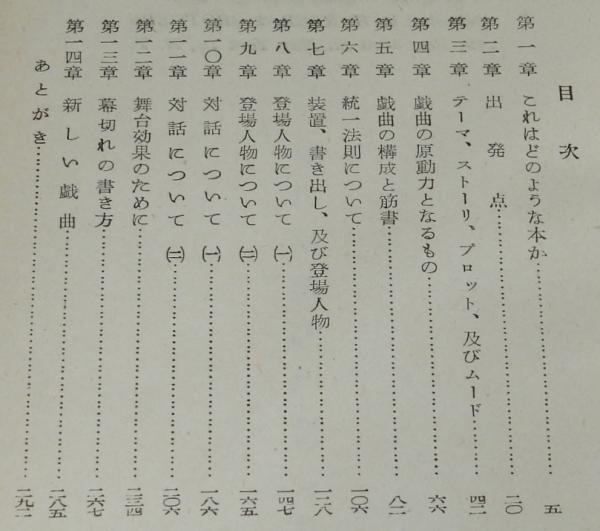 目次
第一章 これはどのような本か……………………五
第二章 出発点……………………二〇
第三章 テーマ、ストーリ、プロット、及びムード……………………四二
第四章 戯曲の原動力となるもの……………………六六
第五章 戯曲の構成と筋書……………………八二
第六章 統一法則について……………………一〇六
第七章 装置、書き出し、及び登場人物……………………一二八
第八章 登場人物について ㈠……………………一四七
第九章 登場人物について ㈡……………………一六五
第一〇章 対話について ㈠……………………一八六
第一一章 対話について ㈡……………………二〇六
第一二章 舞台効果のために……………………二三四
第一三章 幕切れの書き方……………………二六七
第一四章 新しい戯曲……………………二八五
あとがき……………………二九二